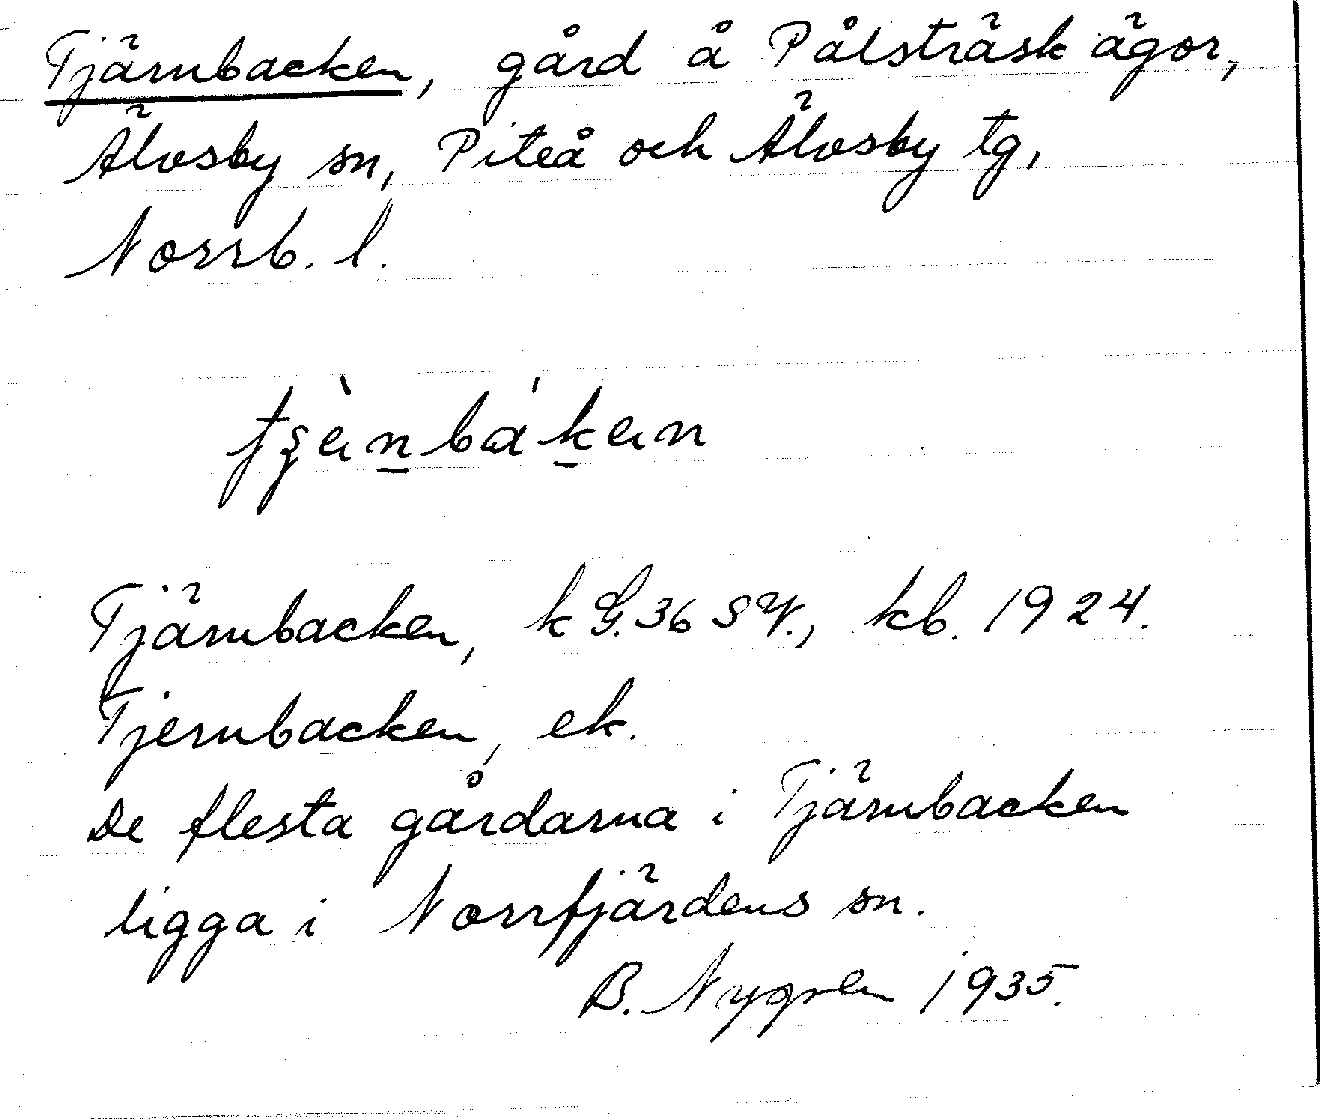 Tjärnbacken, gård å Pålsträsk ägor,
Älvsby sn, Piteå och Älvsby tg,
Norrb. l.
Tjärnbacken, k G.36 SV., kb. 1924.
Tjernbacken, ek.
De flesta gårdarna i Tjärnbacken
ligga i Norrfjärdens sn.
B. Nygren 1935.